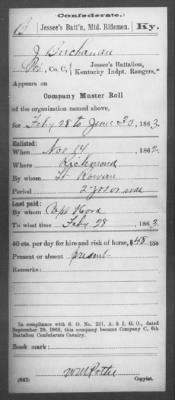 Confederate.
B Jessee's Batt'n, Mtd. Riflemen. Ky.
J Buchanan
Pvt, Co. C, Jessee's Battalion,
Kentucky Indpt. Rangers.*
Appears on
Company Muster Roll
of the organization named above,
for Feby 28 to June 30, 1863.
Enlisted:
When Nov 14, 1862.
Where Richmond
By whom Lt Rowan
Period 2 yrs or war
Last paid:
By whom Capt Hord
To what time Feby 28, 1863.
40 cts. per day for hire and risk of horse, $48
Present or absent present
Remarks:
In compliance with S. O. No. 221, A. & I. G. O., dated
September 28, 1863, this company became Company C, 6th
Battalion Confederate Cavalry.
Book mark:
(642) Copyist.